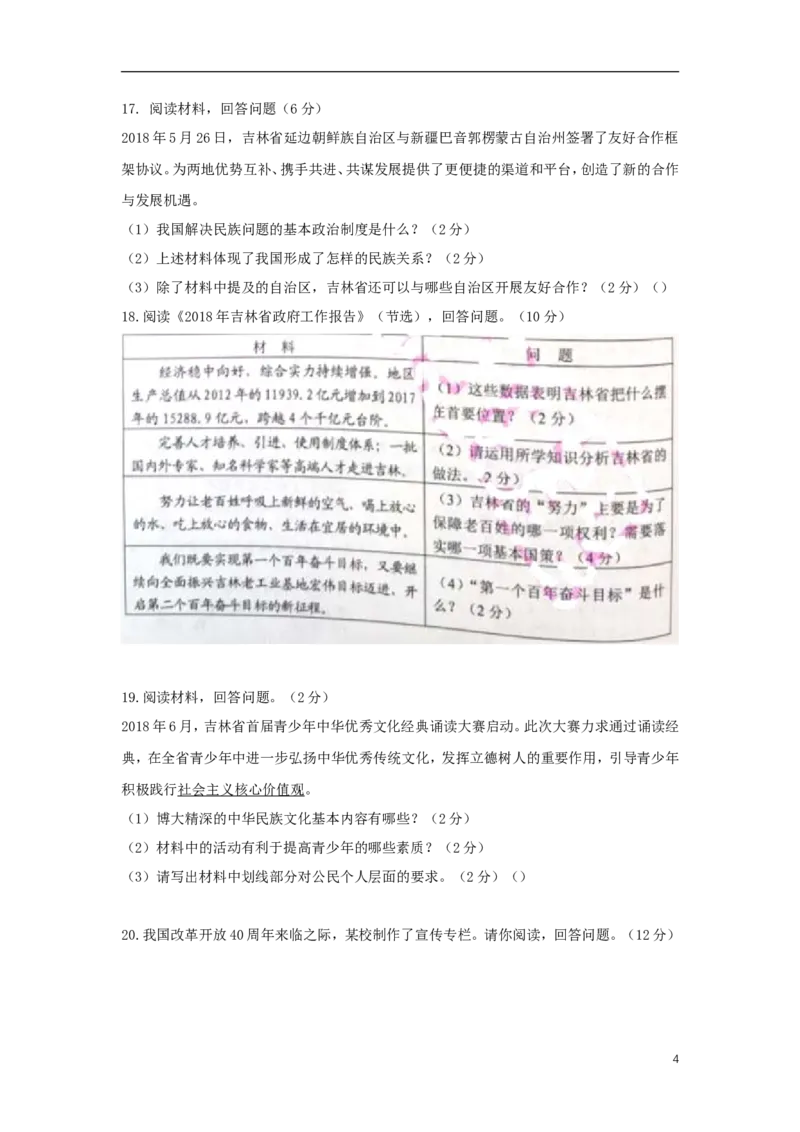 17. 阅读材料，回答问题（6 分）
2018 年 5 月 26 日，吉林省延边朝鲜族自治区与新疆巴音郭楞蒙古自治州签署了友好合作框
架协议。为两地优势互补、携手共进、共谋发展提供了更便捷的渠道和平台，创造了新的合作
与发展机遇。
（1）我国解决民族问题的基本政治制度是什么？（2 分）
（2）上述材料体现了我国形成了怎样的民族关系？（2 分）
（3）除了材料中提及的自治区，吉林省还可以与哪些自治区开展友好合作？（2 分）（）
18.阅读《2018 年吉林省政府工作报告》（节选），回答问题。（10 分）
材 料
经济稳中向好，综合实力持续增强。地区
生产总值从2012年的11939.2亿元增加到2017
年的15288.9亿元，跨越4个千亿元台阶。
问 题
（1）这些数据表明吉林省把什么摆
在首要位置？（2分）
完善人才培养、引进、使用制度体系；一批
国内外专家、知名科学家等高端人才走进吉林。
（2）请运用所学知识分析吉林省的
做法。2分）
努力让老百姓呼吸上新鲜的空气，喝上放心
的水、吃上放心的食物、生活在宜居的环境中。
（3）吉林省的“努力”主要是为了
保障老百姓的哪一项权利？需要落
实哪一项基本国策？（4分）
我们既要实现第一个百年奋斗目标，又要继
续向全面振兴吉林老工业基地宏伟目标迈进，开
启第二个百年奋斗目标的新征程。
（4）“第一个百年奋斗目标”是什
么？（2分）
19.阅读材料，回答问题。（2 分）
2018 年 6 月，吉林省首届青少年中华优秀文化经典诵读大赛启动。此次大赛力求通过诵读经
典，在全省青少年中进一步弘扬中华优秀传统文化，发挥立德树人的重要作用，引导青少年
积极践行社会主义核心价值观。
（1）博大精深的中华民族文化基本内容有哪些？（2 分）
（2）材料中的活动有利于提高青少年的哪些素质？（2 分）
（3）请写出材料中划线部分对公民个人层面的要求。（2 分）（）
20.我国改革开放 40 周年来临之际，某校制作了宣传专栏。请你阅读，回答问题。（12 分）
4